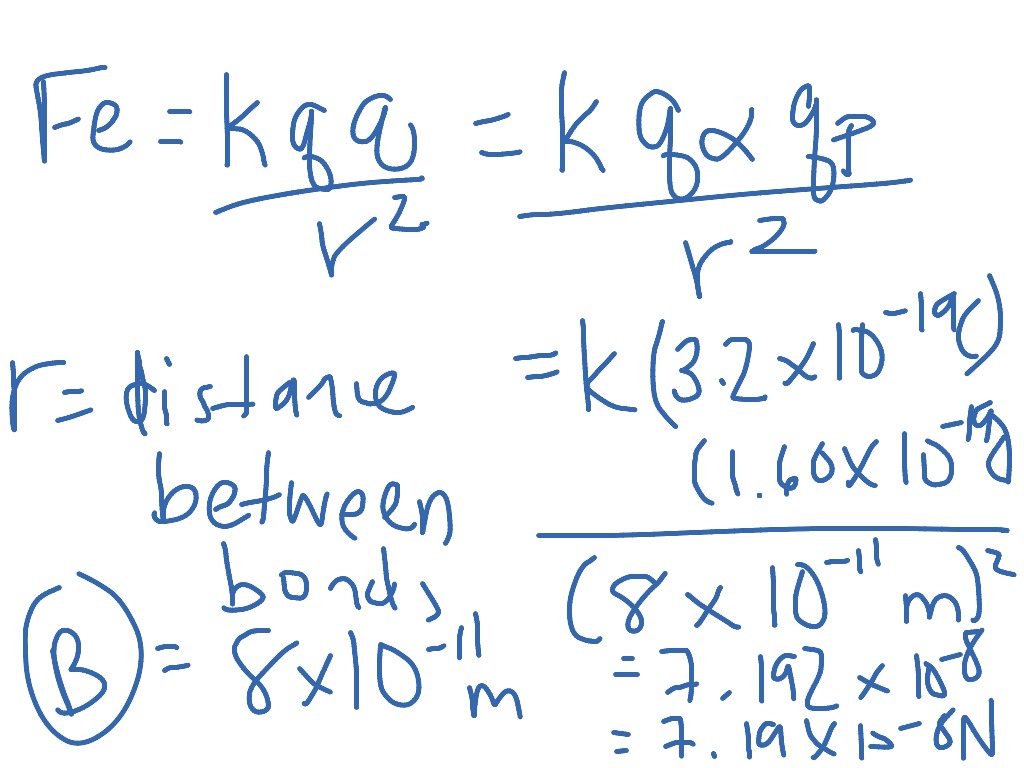 Fe = kqq/r² = kqαqp/r²
r = distance between bonds
= k(3.2×10⁻¹⁹C)
(1.60×10⁻¹⁹)
(8×10⁻¹¹ m)²
Ⓑ = 8×10⁻¹¹ m
= 7.192×10⁻⁸
= 7.19×10⁻⁸N